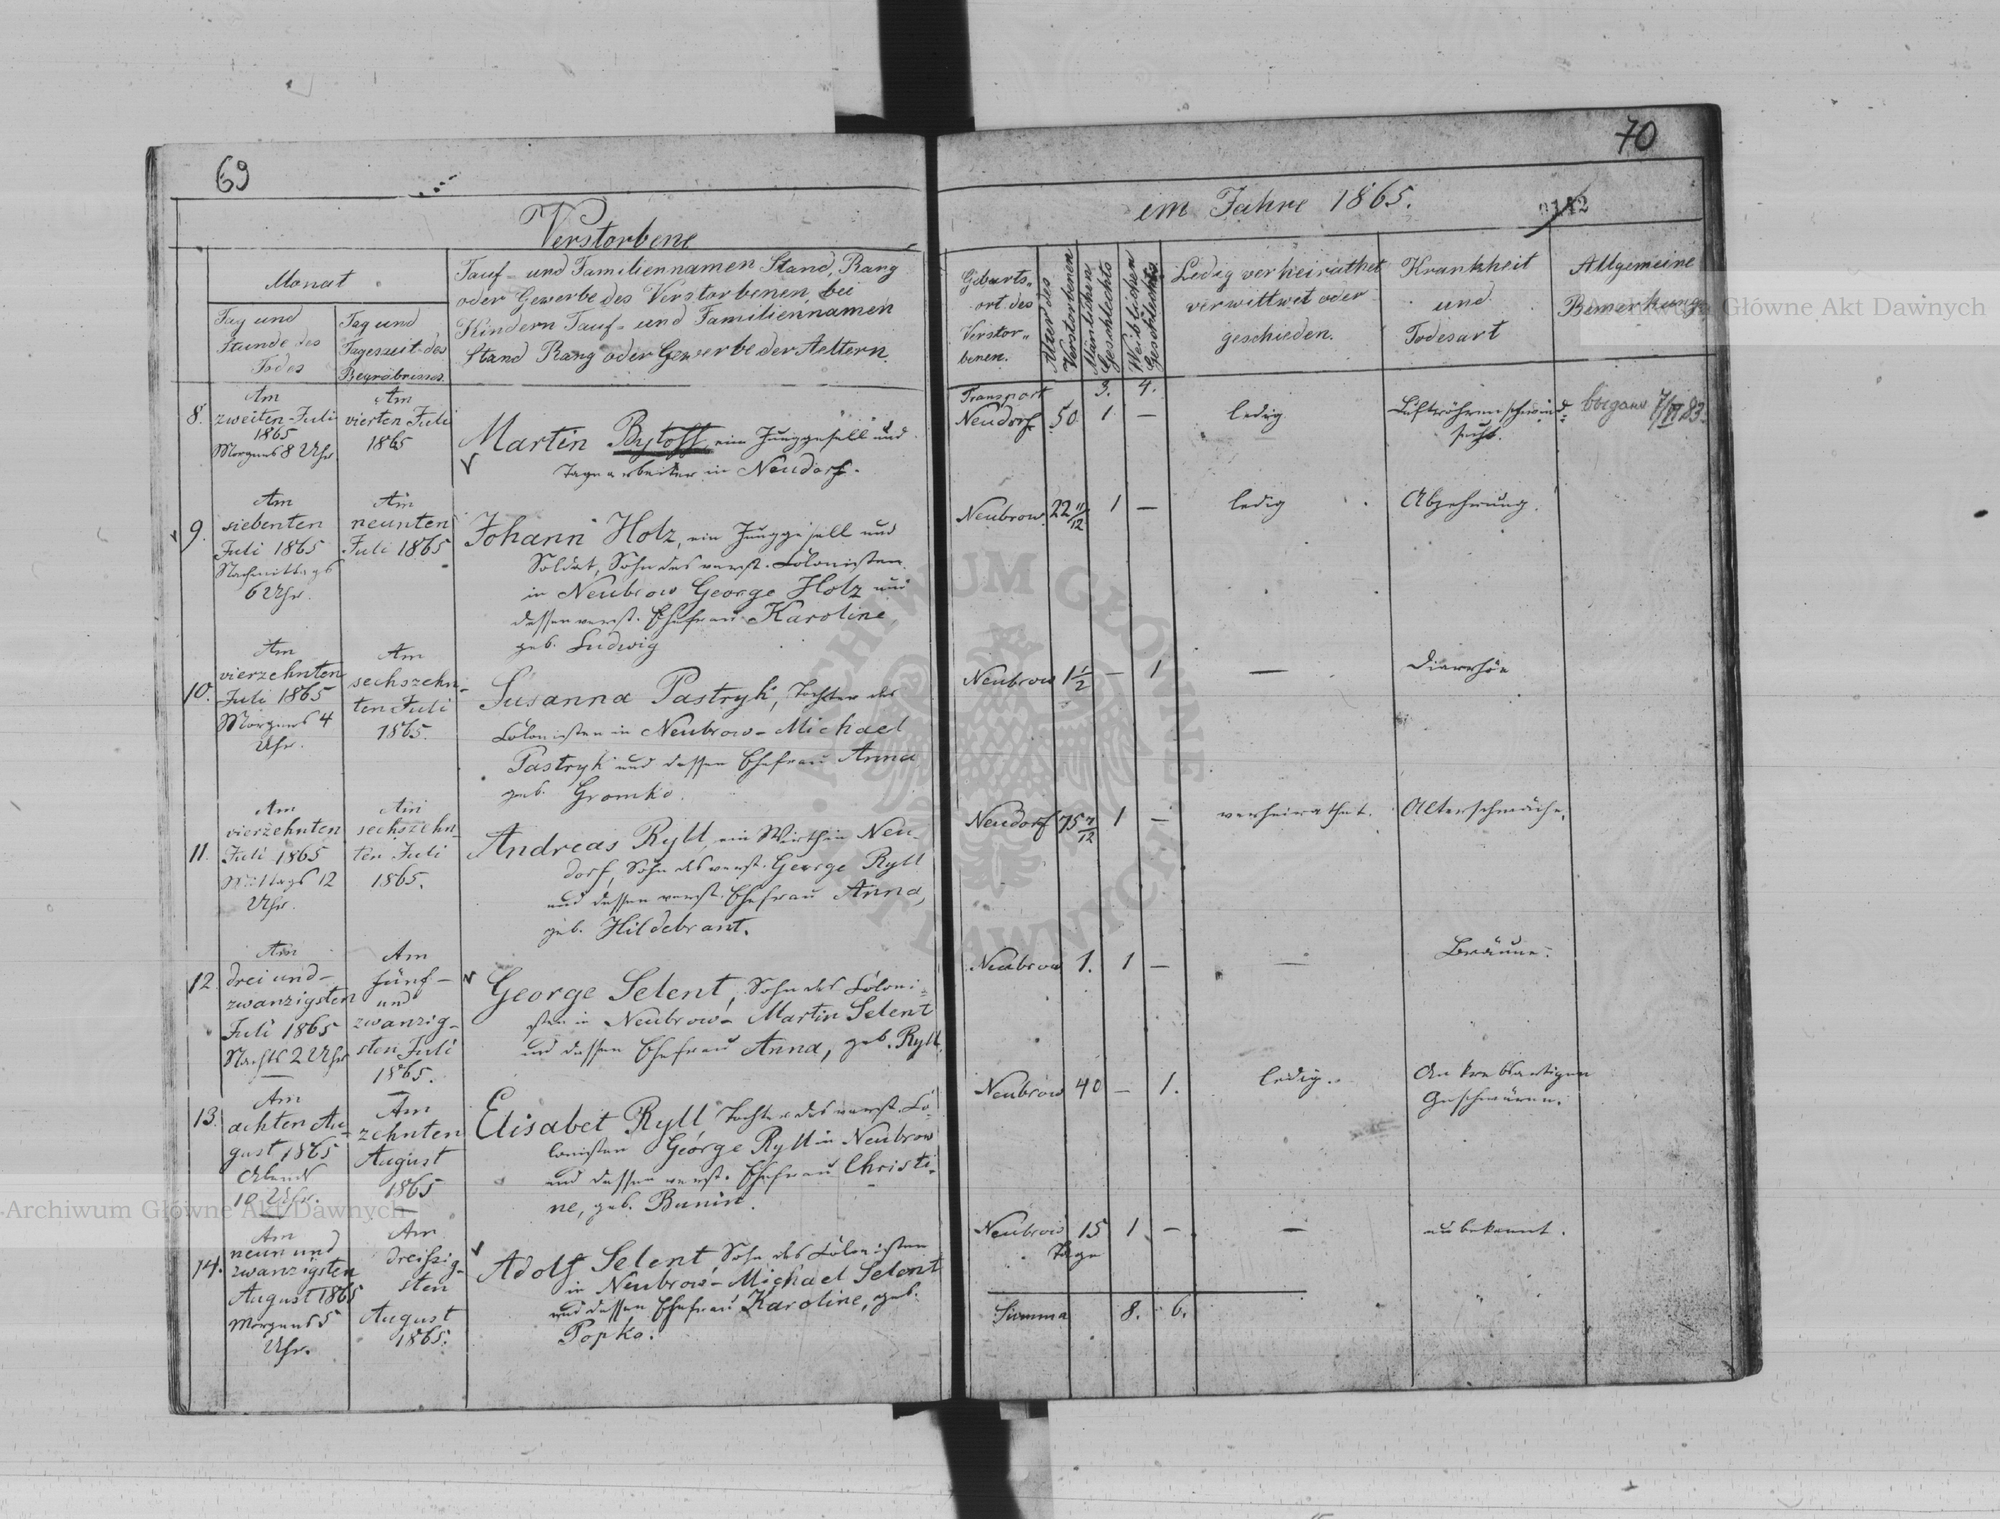 69
Verstorbene
Monat
Tag und
Stunde des
Todes
Tag und
Tageszeit des
Begräbnisses.
Tauf- und Familiennamen Stand, Rang
oder Gewerbe des Verstorbenen, bei
Kindern Tauf- und Familiennamen
Stand Rang oder Gewerbe der Aeltern.
8.
Am
zweiten Juli
1865
Morgens 8 Uhr
Am
vierten Juli
1865
Martin Bytoff, ein Junggesell und
Tagearbeiter in Neudorf.
9.
Am
siebenten
Juli 1865
Nachmittags
6 Uhr.
Am
neunten
Juli 1865
Johann Holz, ein Junggesell und
Soldat, Sohn des verst. Colonisten
in Neubrow George Holz und
dessen verst. Ehefrau Karoline
geb. Ludwig
10.
Am
vierzehnten
Juli 1865
Morgens 4
Uhr.
Am
sechszehn-
ten Juli
1865.
Susanna Pastryk, Tochter des
Colonisten in Neubrow- Michael
Pastryk und dessen Ehefrau Anna
geb. Gromko.
11.
Am
vierzehnten
Juli 1865
Mittags 12
Uhr.
Am
sechszehn-
ten Juli
1865.
Andreas Ryll, ein Wirth in Neu-
dorf, Sohn des verst. George Ryll
und dessen verst. Ehefrau Anna,
geb. Hildebrant.
12.
Am
drei und-
zwanzigsten
Juli 1865
Nachts 2 Uhr
Am
fünf-
und
zwanzig-
sten Juli
1865.
George Selent, Sohn des Coloni-
sten in Neubrow- Martin Selent
und dessen Ehefrau Anna, geb. Ryll.
13.
Am
achten Au-
gust 1865
Abends
10 Uhr.
Am
zehnten
August
1865
Elisabet Ryll, Tochter des verst. Co-
lonisten George Ryll in Neubrow
und dessen verst. Ehefrau Christi-
ne, geb. Bunin.
14.
Am
neun und
zwanzigsten
August 1865
Morgens 5
Uhr.
Am
dreißig-
sten
August
1865.
Adolf Selent, Sohn des Colonisten
in Neubrow- Michael Selent
und dessen Ehefrau Karoline, geb.
Popko.
70
im Jahre 1865.
Geburts-
ort des
Verstor-
benen.
Alter des
Verstorbenen
Männlichen
Geschlechts
Weiblichen
Geschlechts
Ledig verheirathet
verwittwet oder
geschieden.
Krankheit
und
Todesart
Allgemeine
Bemerkung
Transport 3. 4.
Neudorf 50 1 — ledig Luftröhrenschwind-
sucht.
Neubrow 22 11/12 1 — ledig Abzehrung.
Neubrow 1 1/2 — 1 — Diarrhöe
Neudorf 75 7/12 1 — verheirathet. Alterschwäche.
Neubrow 1. 1 — — Bräune.
Neubrow 40 — 1. ledig. An krebsartigen
Geschwüren.
Neubrow 15 1 — — unbekannt.
Tage
Summa 8. 6.
Archiwum Główne Akt Dawnych
Archiwum Główne Akt Dawnych
ARCHIWUM GŁÓWNE AKT DAWNYCH